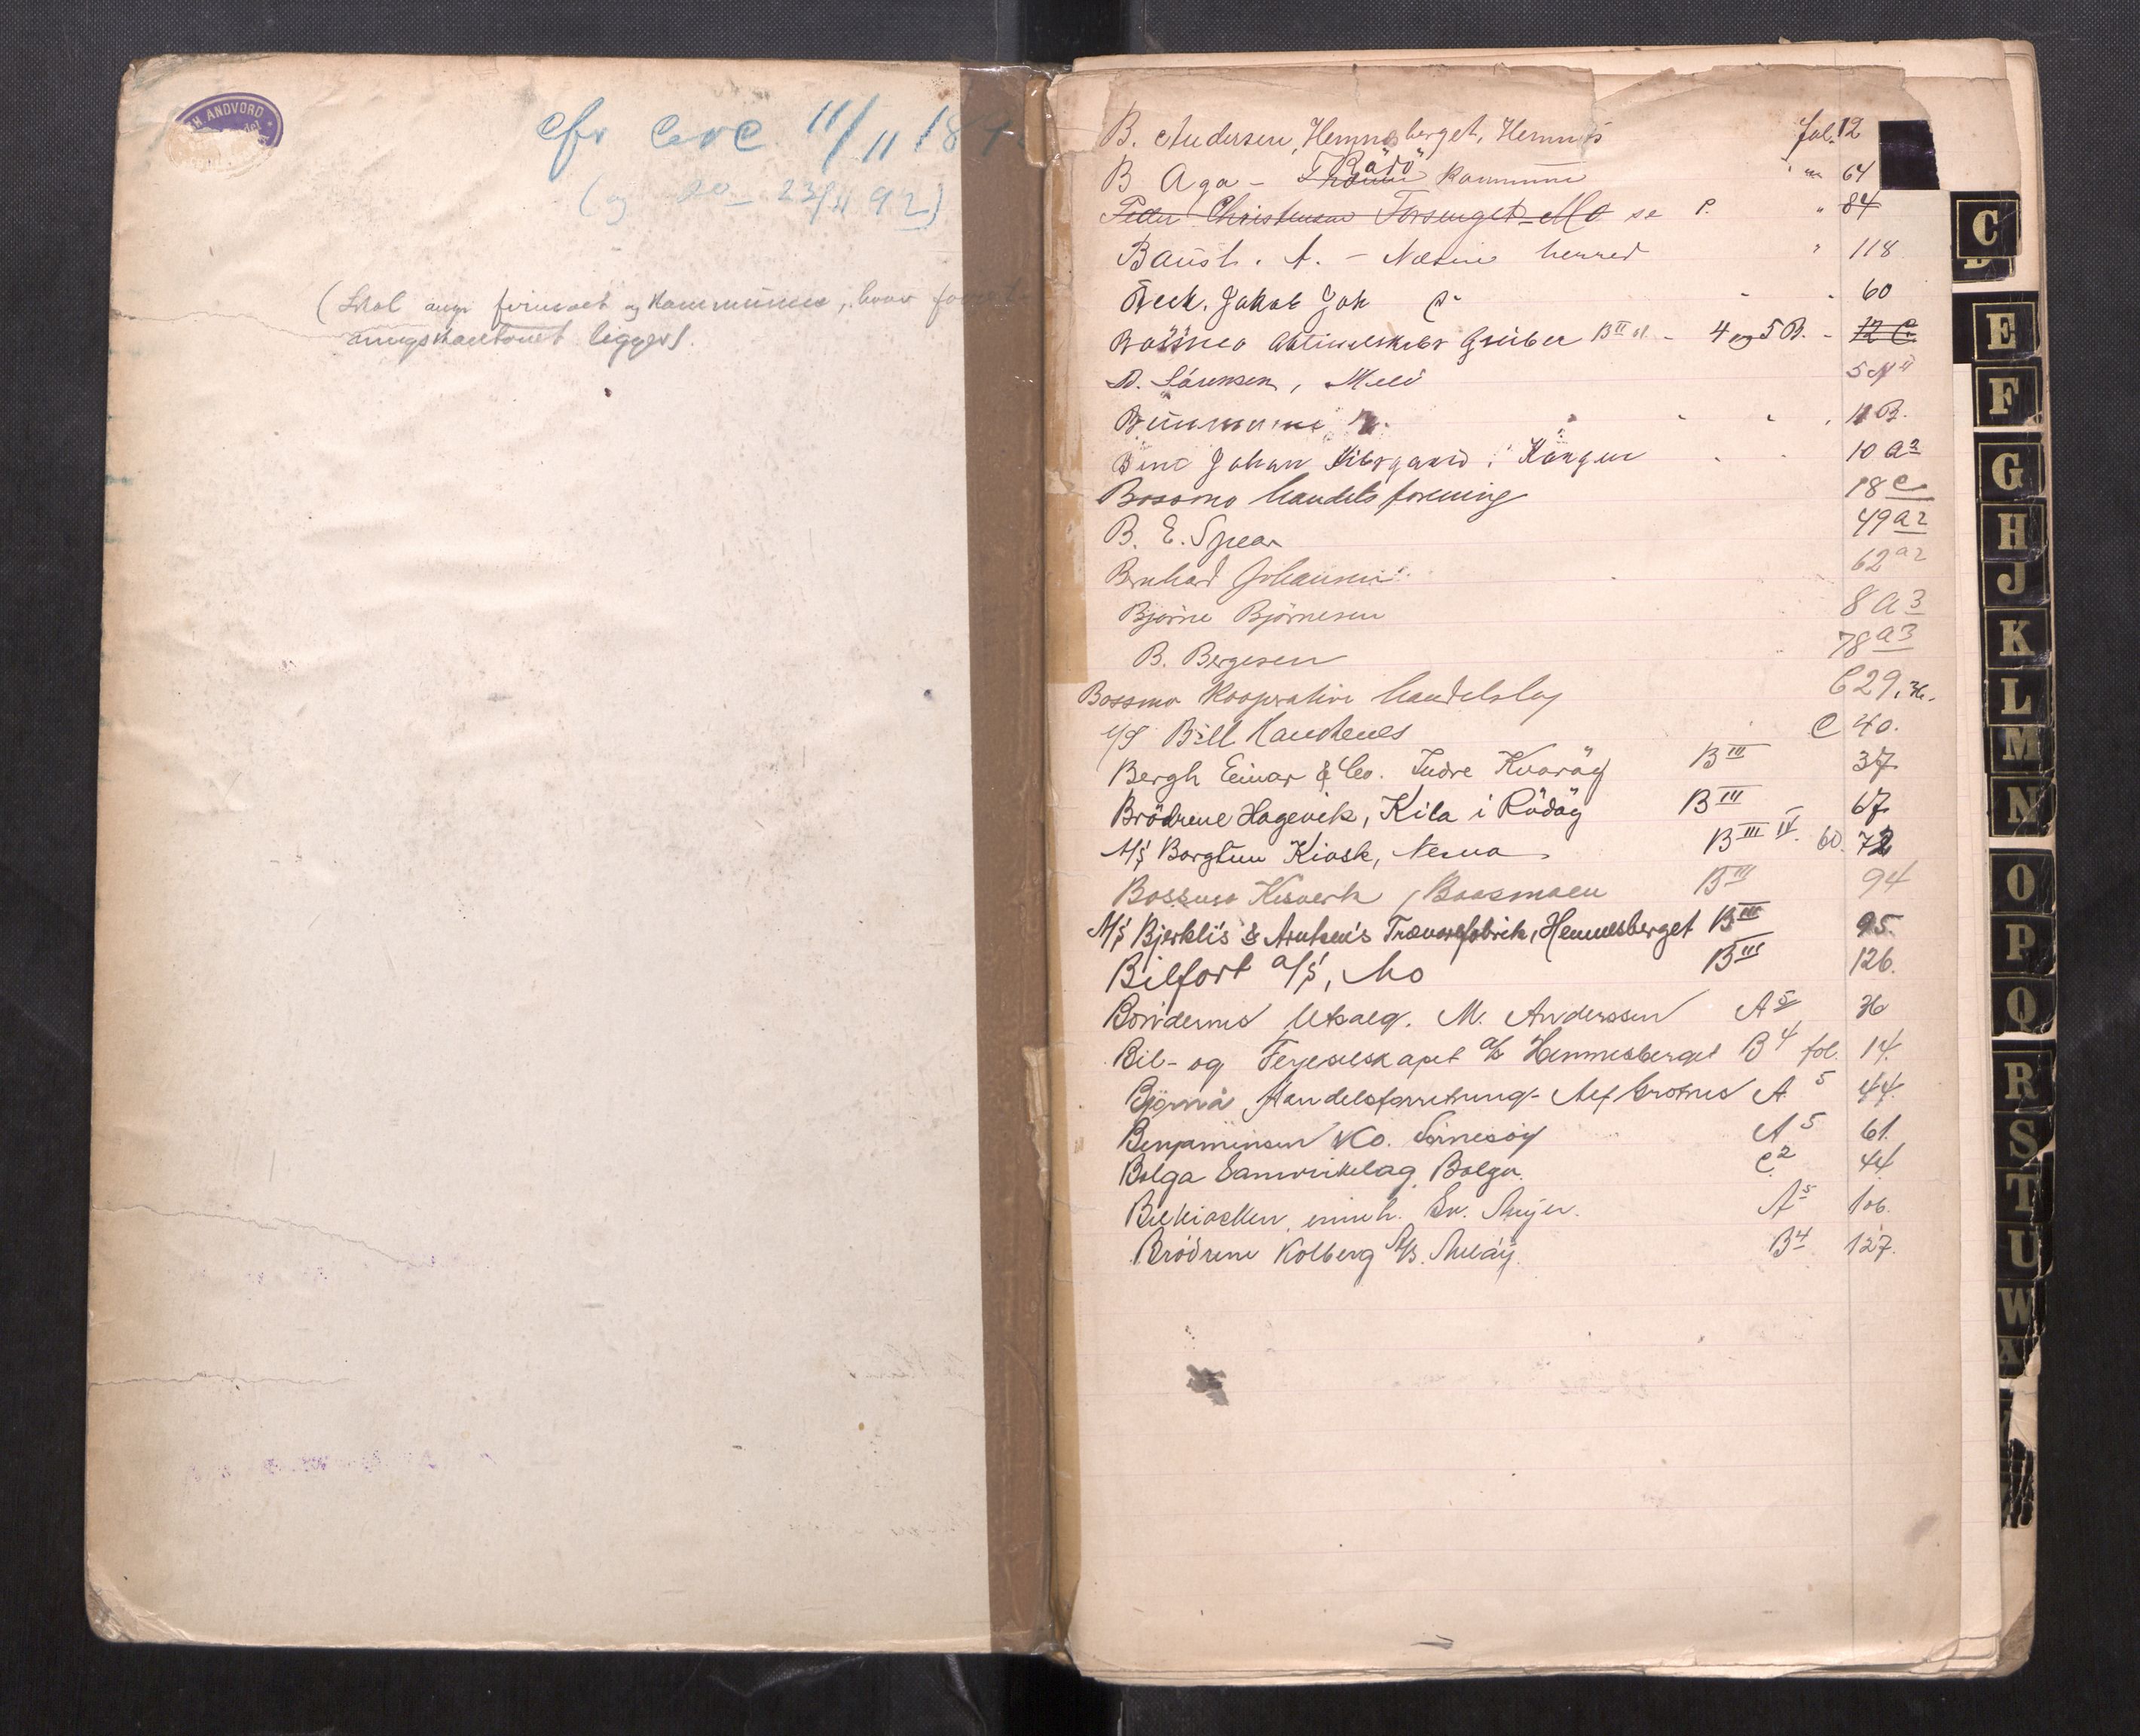 H. ANDVORD
cfr circ 11/11 18
(og do 23/11 92)
(Skal angi firmaet og Kommunen, hvor
ligger).
B. Andersen, Hemnesberget, Hemnes fol. 12
B Aga - Rødø Kommune " 64
Peder Christensen Forsenget Mo se P. " 84
Baustr. A. - Nesne herred " 118
Beck. Jakob Joh 60
Aktieselskabs Gruber B II 4 og 5 B. - 12 C.
B. Sørensen, 5
11 B.
Johan 10 a3
Bossmo handelsforening 18 C
B. E. Spear 49 a2
Bernhard Johansen 62 a2
Bjarne Björnesen 8 a3
B. Bergesen 78 a3
Bossmo Kooperative handelslag C 29, 36.
A/S Bill Handnes C 40.
Bergh Einar & Co. Indre Kvarøy B III 37
Brödrene Hagevik, Kila i Rödöy B III 67
A/S Borgtun Kiosk, Nesna B III IV. 60. 72
Bossmo Kisverk, Baasmoen B III 94
A/S Bjerkli's & Arntsen's Trævarefabrik, Hemnesberget B III 95.
Bilfort a/s, Mo B III 126.
Bøndernes Utsalg. M. Anderssen A 5 36
Bil- og Ferjeselskapet a/s Hemnesberget B 4 fol. 14.
Bjørnå Handelsforretning - Alf Grotnes A 5 44.
Benjaminsen & Co. Sörnesøy A 5 61.
Bolga Samvirkelag, Bolga. C 2 44
Bilkiosken, inneh. Sv. Meyer. A 5 106.
Brödrene Kolberg A/S. Meløy. B 4 127.
C
D
E
F
G
H
J
K
L
M
N
O
P
Q
R
S
T
U
W